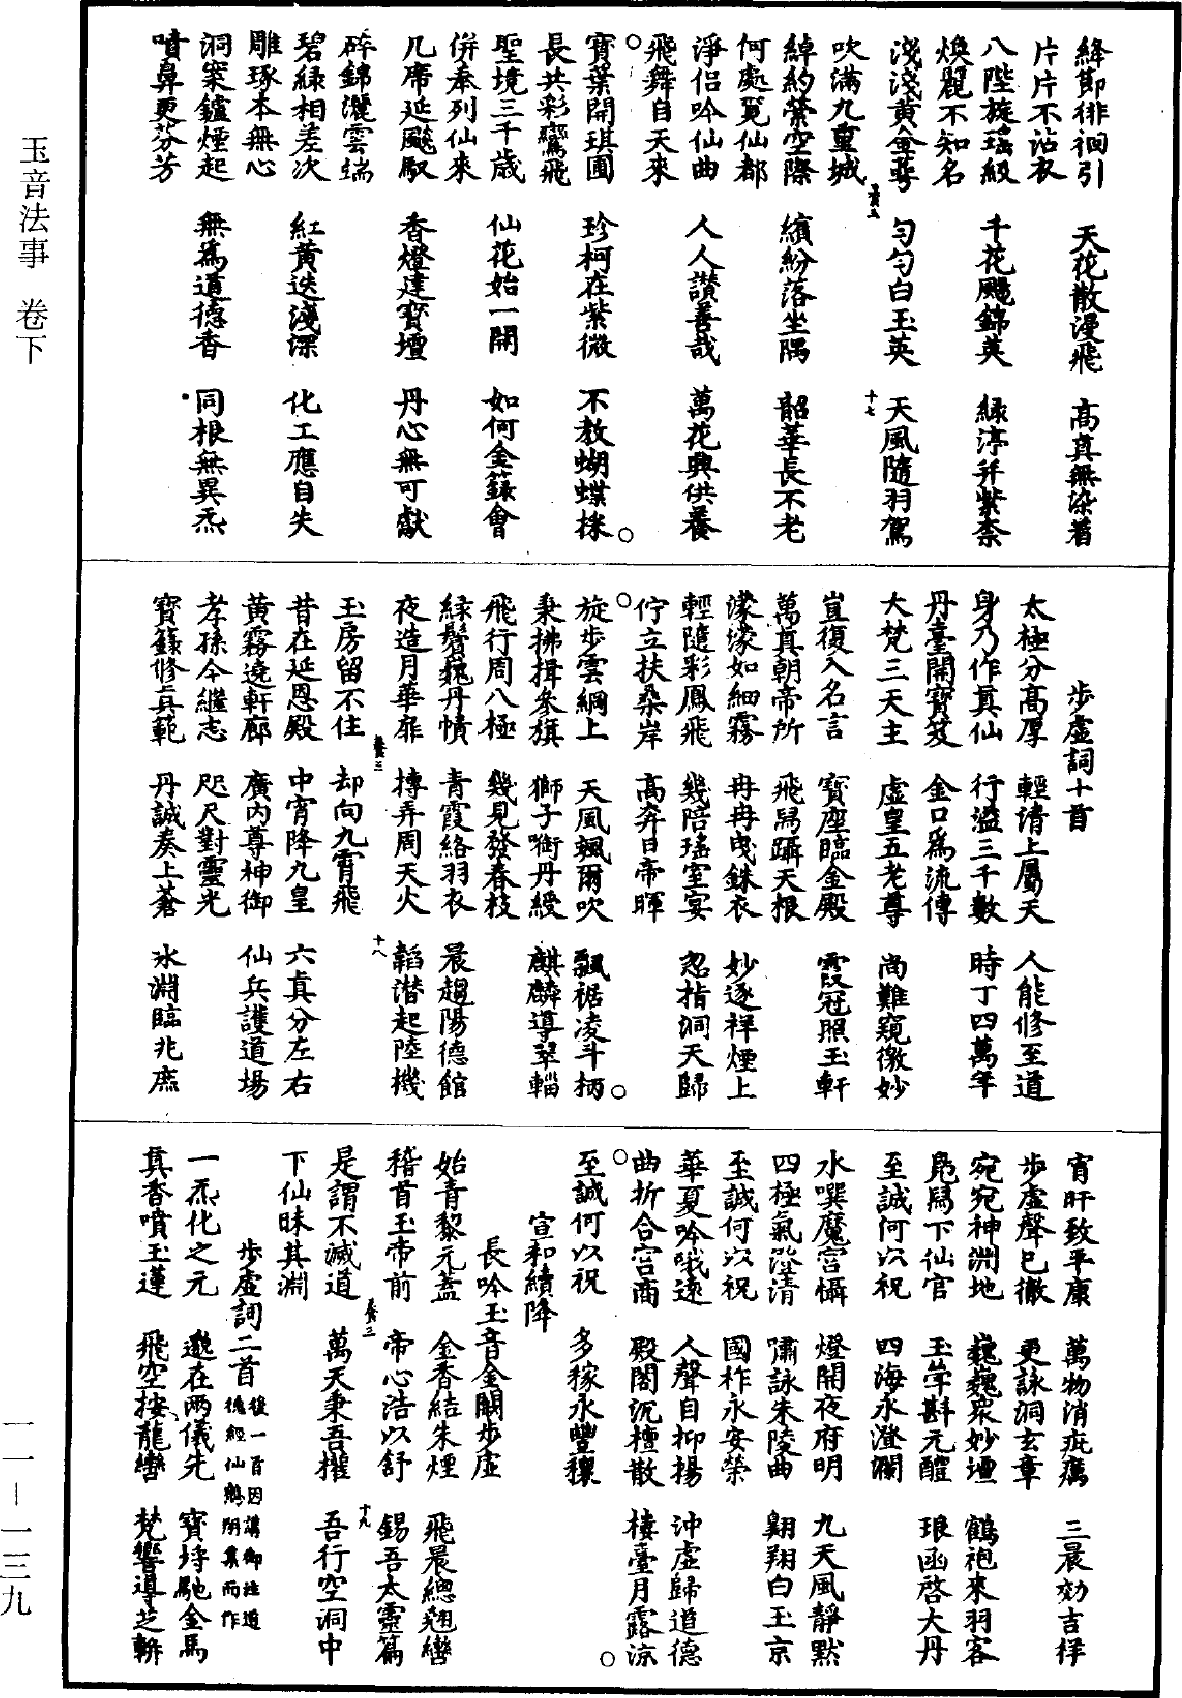 絳節徘徊引　天花散漫飛　高真無染著
片片不沾衣
八陛旋瑤級　千花颺錦英　綠渟幷紫柰
煥麗不知名
淺淺黃金萼　勻勻白玉英　天風隨羽駕
吹滿九重城
綽約縈空際　繽紛落坐隅　韶華長不老
何處覓仙都
淨侶吟仙曲　人人讚善哉　萬花興供養
飛舞自天來
○
寶葉開琪圃　珍柯在紫微　不教蝴蝶採○
長共彩鸞飛
聖境三千歲　仙花始一開　如何金籙會
併奉列仙來
几席延飈馭　香燈建寶壇　丹心無可獻
碎錦灑雲端
碧綠相差次　紅黃迭淺深　化工應自失
雕琢本無心
洞案鑪煙起　無爲道德香　同根無異炁
噴鼻更芬芳
十七
步虛詞十首
太極分高厚　輕清上屬天　人能修至道
身乃作真仙　行溢三千數　時丁四萬年
丹臺開寶笈　金口爲流傳
大梵三天主　虛皇五老尊　尚難窺微妙
豈復入名言　寶座臨金殿　霞冠照玉軒
萬真朝帝所　飛舄躡天根
濛濛如細霧　冉冉曳銖衣　妙逐祥煙上
輕隨彩鳳飛　幾陪瑤室宴　忽指洞天歸
佇立扶桑岸　高奔日帝暉
○
旋步雲綱上　天風颯爾吹　飄裾凌斗柄○
秉拂揖參旗　獅子銜丹綬　麒麟導翠輜
飛行周八極　幾見發春枝
綠鬢巍丹幘　青霞絡羽衣　晨趨陽德館
夜造月華扉　摶弄周天火　韜潛起陸機
玉房留不住　却向九霄飛
十八
昔在延恩殿　中宵降九皇　六真分左右
黃霧遶軒廊　廣內尊神御　仙兵護道場
孝孫今繼志　咫尺對靈光
寶籙修真範　丹誠奏上蒼　氷淵臨兆庶
宵旰致平康　萬物消疵癘　三晨効吉祥
步虛聲已徹　更詠洞玄章
宛宛神淵地　巍巍衆妙壇　鶴袍來羽客
鳧舄下仙官　玉斝斟元醴　琅函啓大丹
至誠何以祝　四海永澄瀾
水噀魔宮懾　燈開夜府明　九天風靜默
四極氣澄清　嘯詠朱陵曲　翺翔白玉京
至誠何以祝　國祚永安榮
華夏吟哦遠　人聲自抑揚　沖虛歸道德
曲折合宮商　殿閣沉檀散　棲臺月露涼
○
至誠何以祝　多稼永豐穰○
宣和續降
長吟玉音金闕步虛
始青黎元蓋　金香結朱煙　飛晨總翹轡
稽首玉帝前　帝心浩以舒　錫吾太靈篇
是謂不滅道　萬天秉吾權　吾行空洞中
下仙昧其淵
十九
步虛詞二首　後一首因講御注道德經仙鶴翔集而作
一炁化之元　邈在兩儀先　寶埒馳金馬
真香噴玉蓮　飛空按龍轡　梵響導芝軿
玉音法事　卷下
一一－一三九